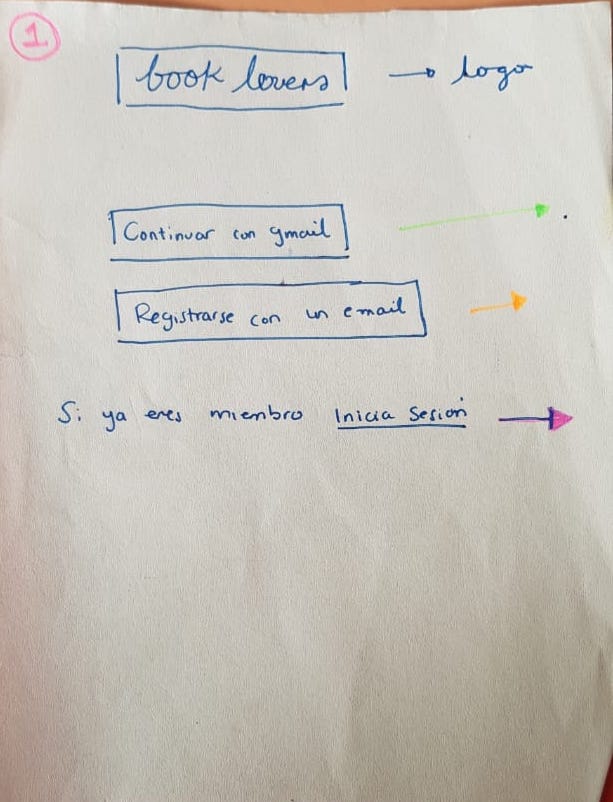 1
book lovers → logo
Continuar con gmail
Registrarse con un email
Si ya eres miembro Inicia Sesión